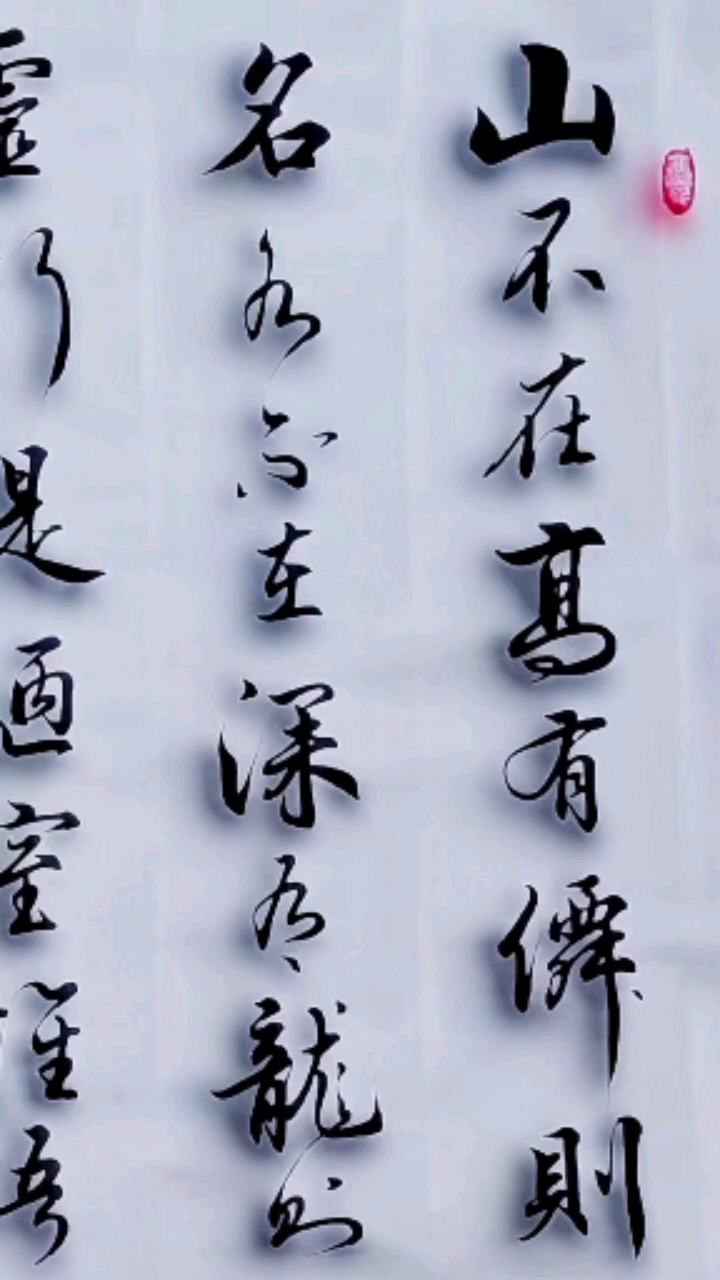 山不在髙有僊則
名水不在深有龍則
靈斯是陋室惟吾